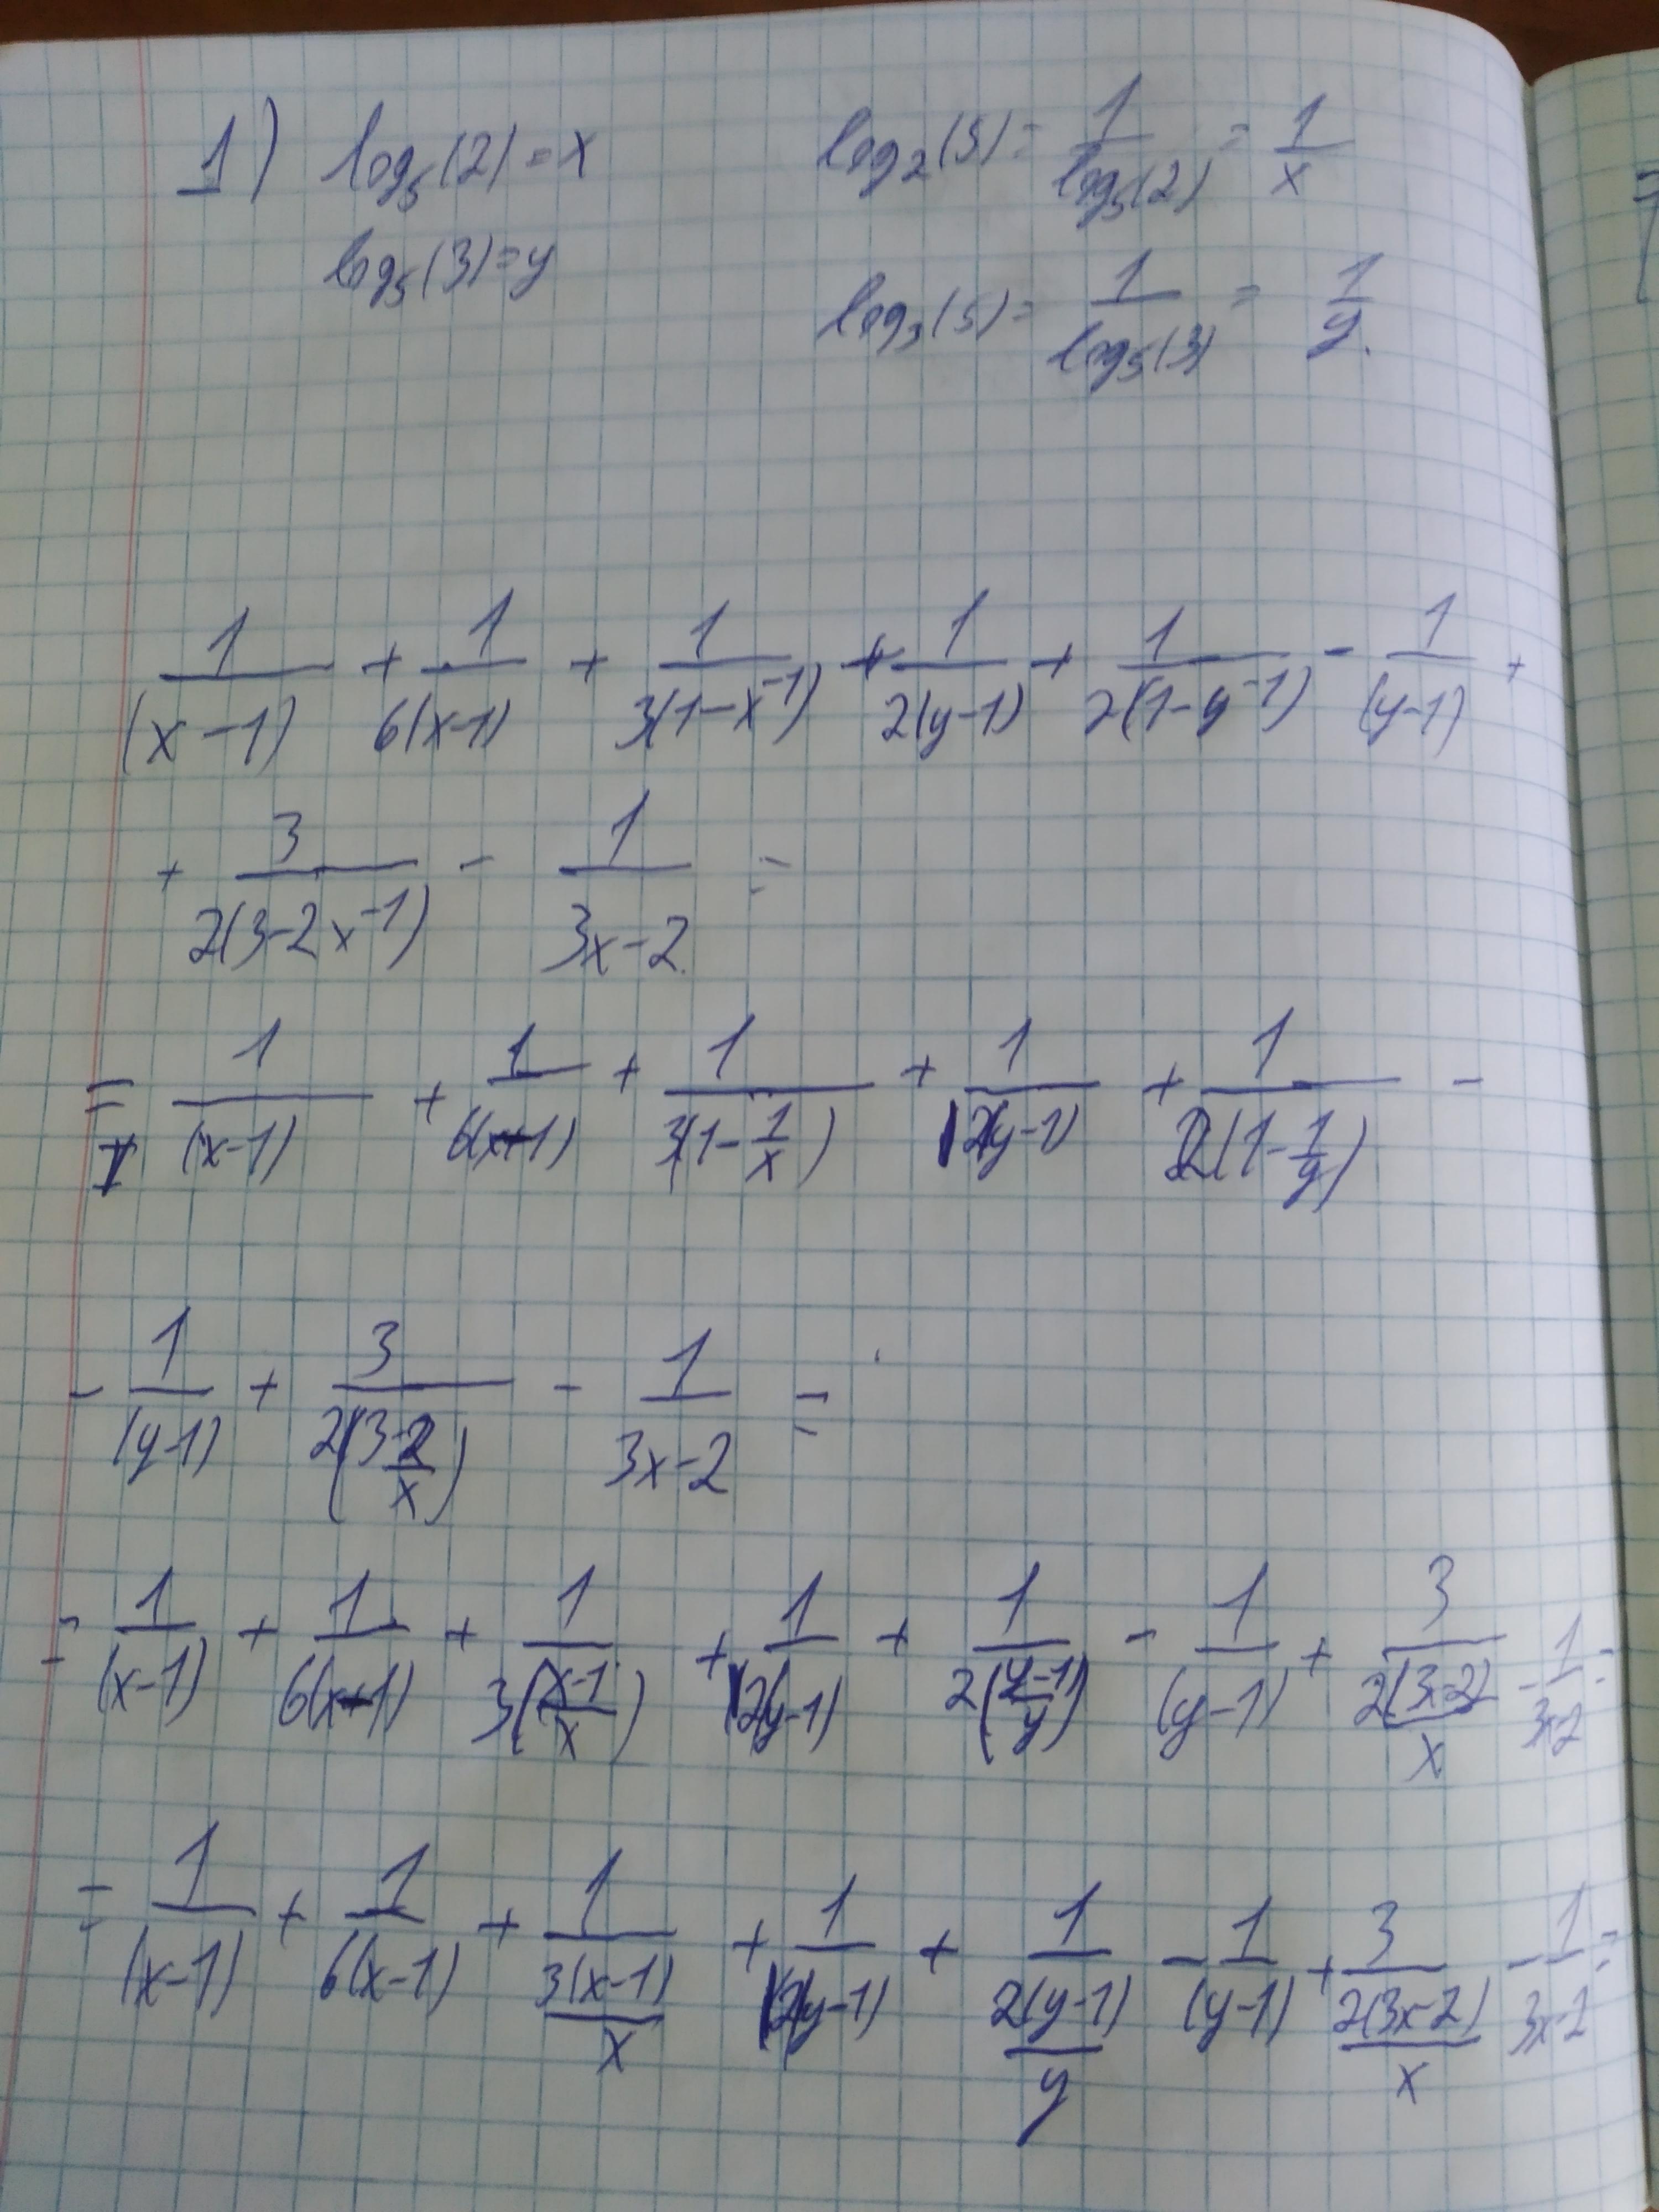 1) log₅(2)=x log₂(5)= 1/log₅(2) = 1/x
log₅(3)=y log₃(5)= 1/log₅(3) = 1/y.
1/(x-1) + 1/6(x-1) + 1/3(1-x⁻¹) + 1/2(y-1) + 1/2(1-y⁻¹) - 1/(y-1) +
+ 3/2(3-2x⁻¹) - 1/3x-2 =
= 1/(x-1) + 1/6(x-1) + 1/3(1-1/x) + 1/2(y-1) + 1/2(1-1/y) -
- 1/(y-1) + 3/2(3-2/x) - 1/3x-2 =
= 1/(x-1) + 1/6(x-1) + 1/3((x-1)/x) + 1/2(y-1) + 1/2((y-1)/y) - 1/(y-1) + 3/(2(3x-2)/x) - 1/3x-2 =
= 1/(x-1) + 1/6(x-1) + 1/(3(x-1)/x) + 1/2(y-1) + 1/(2(y-1)/y) - 1/(y-1) + 3/(2(3x-2)/x) - 1/3x-2 =